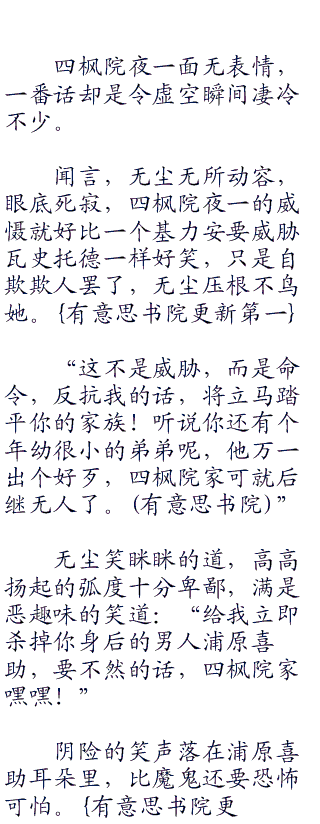 四枫院夜一面无表情，
一番话却是令虚空瞬间凄冷
不少。
闻言，无尘无所动容，
眼底死寂，四枫院夜一的威
慑就好比一个基力安要威胁
瓦史托德一样好笑，只是自
欺欺人罢了，无尘压根不鸟
她。{有意思书院更新第一}
“这不是威胁，而是命
令，反抗我的话，将立马踏
平你的家族！听说你还有个
年幼很小的弟弟呢，他万一
出个好歹，四枫院家可就后
继无人了。(有意思书院)”
无尘笑眯眯的道，高高
扬起的弧度十分卑鄙，满是
恶趣味的笑道：“给我立即
杀掉你身后的男人浦原喜
助，要不然的话，四枫院家
嘿嘿！”
阴险的笑声落在浦原喜
助耳朵里，比魔鬼还要恐怖
可怕。{有意思书院更